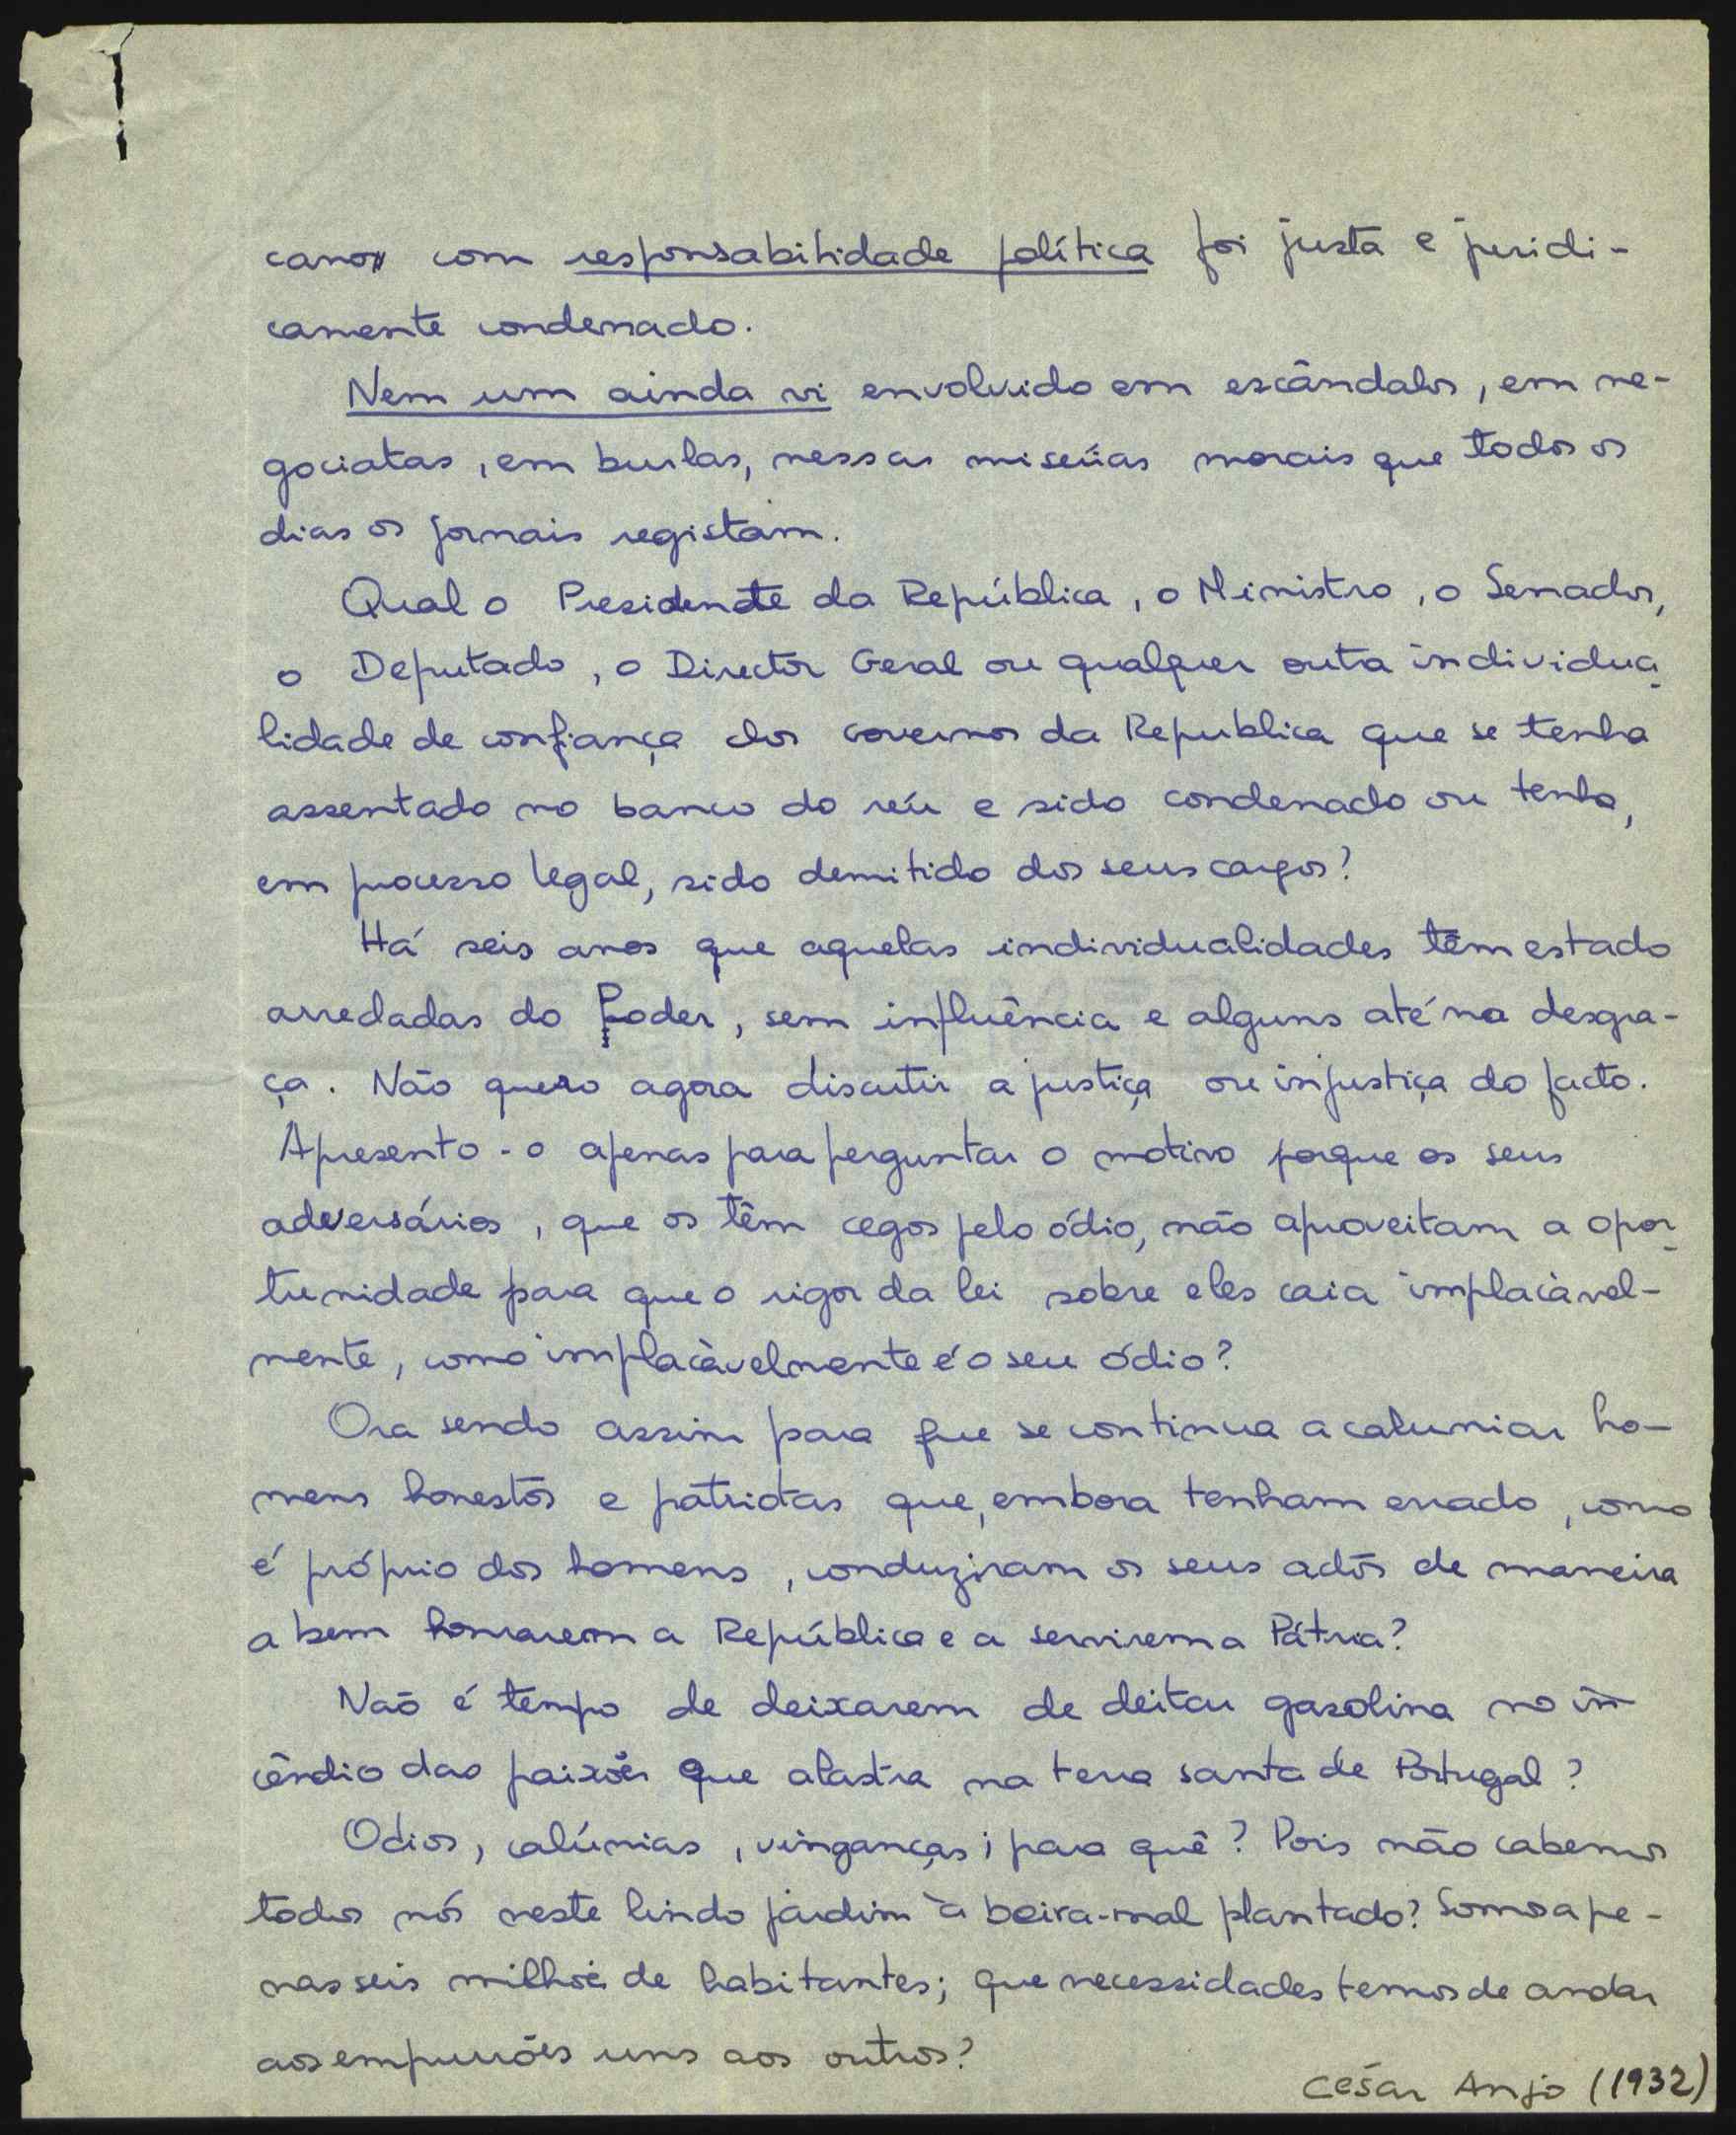 cano com responsabilidade política foi justa e juridi-
camente condenado.
Nem um ainda vi envolvido em escândalos, em ne-
gociatas, em burlas, nessas misérias morais que todos os
dias os jornais registam.
Qual o Presidente da República, o Ministro, o Senador,
o Deputado, o Director Geral ou qualquer outra individua
lidade de confiança dos governos da Republica que se tenha
assentado no banco do réu e sido condenado ou tenha,
em processo legal, sido demitido dos seus cargos?
Há seis anos que aquelas individualidades têm estado
arredadas do Poder, sem influência e alguns até na desgra-
ça. Não quero agora discutir a justiça ou injustiça do facto.
Apresento-o apenas para perguntar o motivo porque os seus
adversários, que os têm cegos pelo ódio, não aproveitam a opor
tunidade para que o rigor da lei sobre eles caia implacàvel-
mente, como implacàvelmente é o seu ódio?
Ora sendo assim para que se continua a caluniar ho-
mens honestos e patriotas que, embora tenham errado, como
é próprio dos homens, conduziram os seus actos de maneira
a bem honrarem a República e a servirem a Pátria?
Não é tempo de deixarem de deitar gasolina no in
cêndio das paixões que alastra na terra santa de Portugal?
Odios, calúnias, vinganças; para quê? Pois não cabemos
todos nós neste lindo jardim à beira-mal plantado? Somos ape-
nas seis milhões de habitantes; que necessidades temos de andar
aos empurrões uns aos outros?
César Anjo (1932)